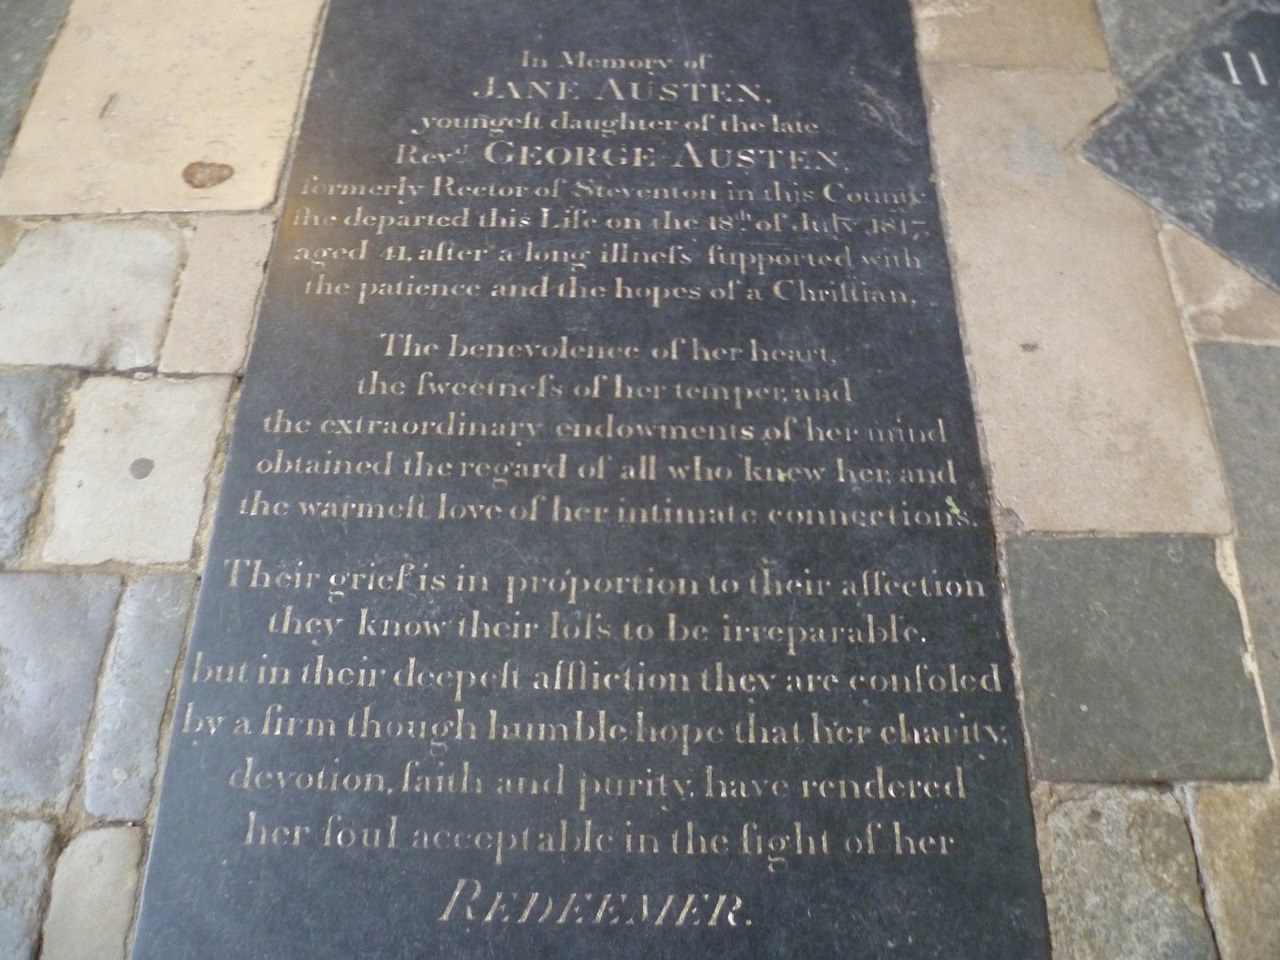 In Memory of
JANE AUSTEN,
youngeſt daughter of the late
Revᵈ GEORGE AUSTEN,
formerly Rector of Steventon in this County
the departed this Life on the 18ᵗʰ of July 1817,
aged 41, after a long illneſs ſupported with
the patience and the hopes of a Chriſtian.
The benevolence of her heart,
the ſweetneſs of her temper, and
the extraordinary endowments of her mind
obtained the regard of all who knew her, and
the warmeſt love of her intimate connections.
Their grief is in proportion to their affection
they know their loſs to be irreparable,
but in their deepeſt affliction they are conſoled
by a firm though humble hope that her charity,
devotion, faith and purity, have rendered
her ſoul acceptable in the ſight of her
REDEEMER.